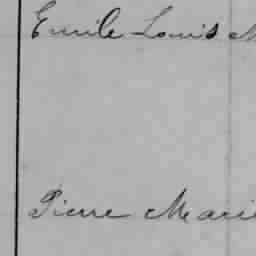 Emile Louis M
Pierre Marie